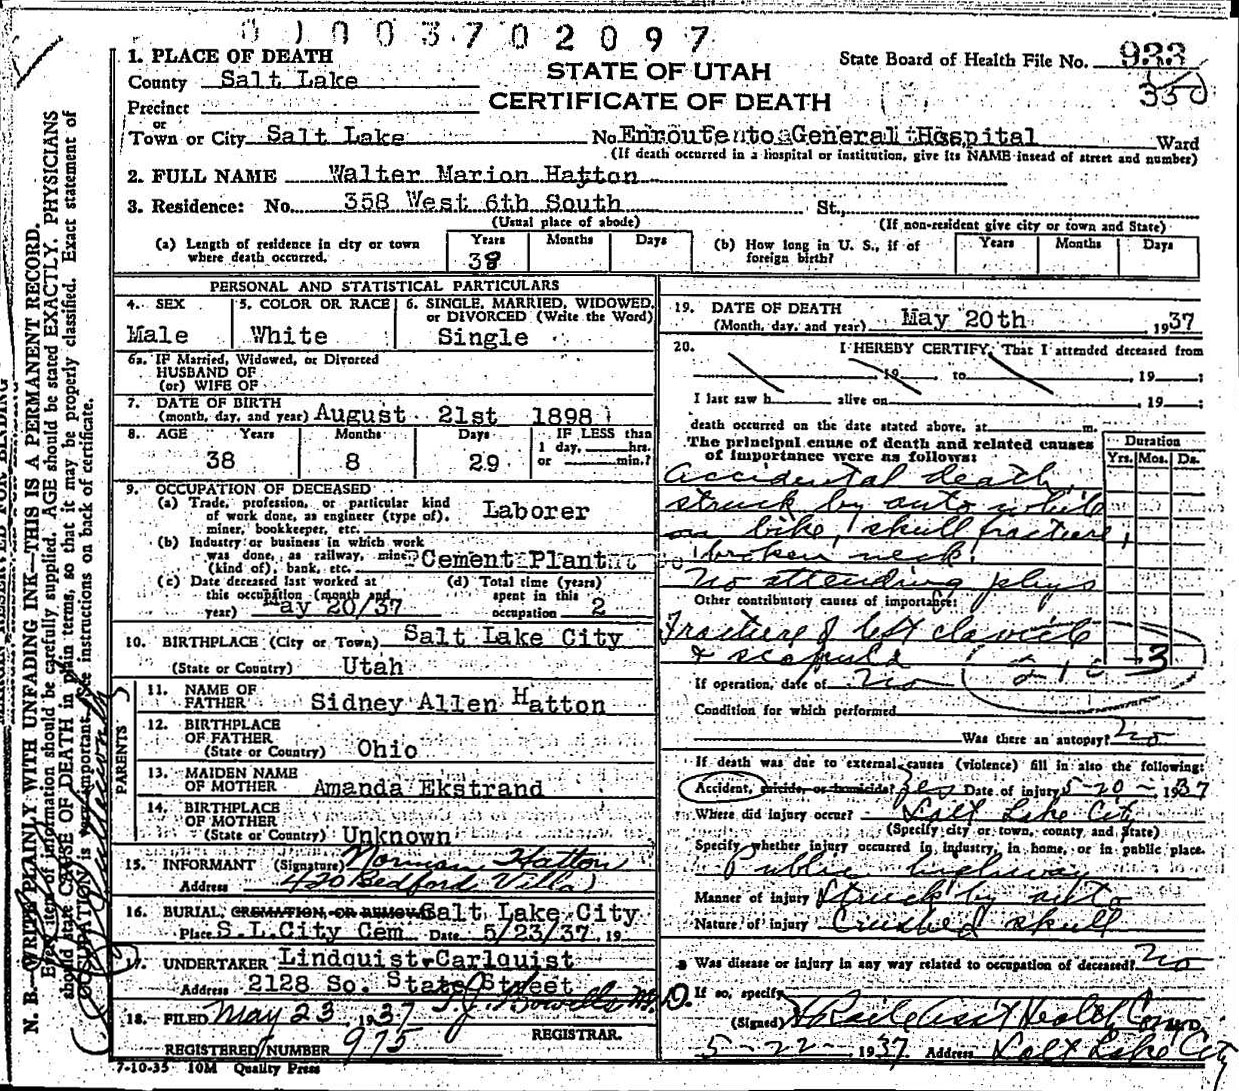 0100370 2097
1. PLACE OF DEATH
County Salt Lake
STATE OF UTAH
State Board of Health File No. 933
350
Precinct
CERTIFICATE OF DEATH
or
Town or City Salt Lake No. Enroute to General Hospital Ward
(If death occurred in a hospital or institution, give its NAME instead of street and number)
2. FULL NAME Walter Marion Hatton
3. Residence: No. 358 West 6th South St.,
(Usual place of abode) (If non-resident give city or town and State)
(a) Length of residence in city or town where death occurred. Years 38 Months Days
(b) How long in U. S., if of foreign birth? Years Months Days
PERSONAL AND STATISTICAL PARTICULARS
4. SEX Male
5. COLOR OR RACE White
6. SINGLE, MARRIED, WIDOWED, or DIVORCED (Write the Word) Single
6a. IF Married, Widowed, or Divorced
HUSBAND OF
(or) WIFE OF
7. DATE OF BIRTH
(month, day, and year) August 21st 1898
8. AGE Years Months Days IF LESS than
1 day, hrs.
or min.?
38 8 29
9. OCCUPATION OF DECEASED
(a) Trade, profession, or particular kind of work done, as engineer (type of), miner, bookkeeper, etc. Laborer
(b) Industry or business in which work was done, as railway, mine (kind of), bank, etc. Cement Plant
(c) Date deceased last worked at this occupation (month and year) May 20/37
(d) Total time (years) spent in this occupation 2
10. BIRTHPLACE (City or Town) Salt Lake City
(State or Country) Utah
PARENTS
11. NAME OF FATHER Sidney Allen Hatton
12. BIRTHPLACE OF FATHER
(State or Country) Ohio
13. MAIDEN NAME OF MOTHER Amanda Ekstrand
14. BIRTHPLACE OF MOTHER
(State or Country) Unknown
15. INFORMANT (Signature) Norman Hatton
Address 420 Bedford Villa
16. BURIAL, CREMATION, OR REMOVAL Salt Lake City
Place S.L.City Cem. Date 5/23/37, 19
17. UNDERTAKER Lindquist-Carlquist
Address 2128 So. State Street
18. FILED May 23, 1937 M.D.
REGISTRAR.
REGISTERED NUMBER 975
7-10-35 10M Quality Press
19. DATE OF DEATH
(Month, day, and year) May 20th 1937
20. I HEREBY CERTIFY, That I attended deceased from
, 19 to , 19 ;
I last saw h alive on , 19 ;
death occurred on the date stated above, at m.
The principal cause of death and related causes of importance were as follows:
Duration
Yrs. Mos. Ds.
Accidental death,
struck by auto while
on bike, skull fracture,
broken neck.
No attending phys
Other contributory causes of importance:
Fracture of left clavicle
& scapula
210 - 3
If operation, date of No
Condition for which performed
Was there an autopsy? No
If death was due to external causes (violence) fill in also the following:
Accident, suicide, or homicide? Yes Date of injury 5-20- 1937
Where did injury occur? Salt Lake City
(Specify city or town, county and State)
Specify whether injury occurred in industry, in home, or in public place.
Public highway
Manner of injury Struck by auto
Nature of injury Crushed skull
Was disease or injury in any way related to occupation of deceased? No
If so, specify
(Signed) Asst Health Com M.D.
5-22-, 1937 Address Salt Lake City
N. B.—WRITE PLAINLY WITH UNFADING INK—THIS IS A PERMANENT RECORD.
Every item of information should be carefully supplied. AGE should be stated EXACTLY. PHYSICIANS
should state CAUSE OF DEATH in plain terms, so that it may be properly classified. Exact statement of
OCCUPATION is very important. See instructions on back of certificate.